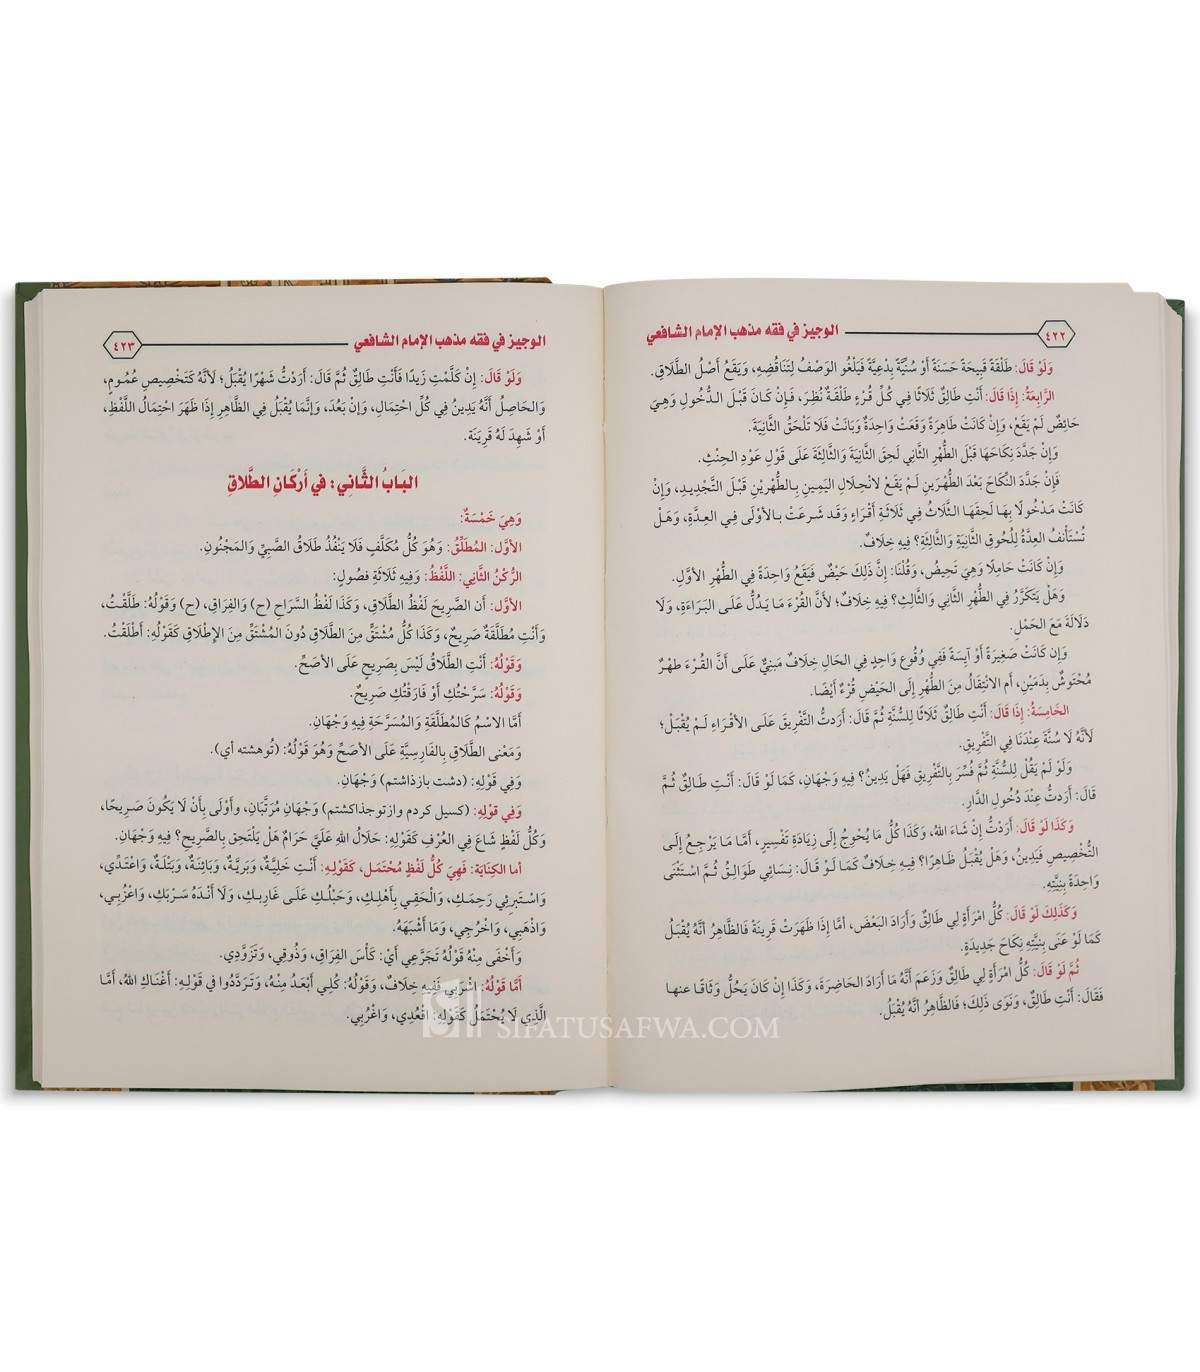 ٤٢٢ الوجيز في فقه مذهب الإمام الشافعي
وَلَوْ قَالَ: طَلْقَةً قَبِيحَةً حَسَنَةً أَوْ سُنِّيَّةً بِدْعِيَّةً فَيَلْغُو الوَصْفُ لِتَنَاقُضِهِ، وَيَقَعُ أَصْلُ الطَّلَاقِ.
الرَّابِعَةُ: إِذَا قَالَ: أَنْتِ طَالِقٌ ثَلَاثًا فِي كُلِّ قُرْءٍ طَلْقَةٌ نُظِرَ، فَإِنْ كَانَ قَبْلَ الدُّخُولِ وَهِيَ
حَائِضٌ لَمْ يَقَعْ، وَإِنْ كَانَتْ طَاهِرَةً وَقَعَتْ وَاحِدَةٌ وَبَانَتْ فَلَا تَلْحَقُ الثَّانِيَةَ.
وَإِنْ جَدَّدَ نِكَاحَهَا قَبْلَ الطُّهْرِ الثَّانِي لَحِقَ الثَّانِيَةَ وَالثَّالِثَةَ عَلَى قَوْلِ عَوْدِ الحِنْثِ.
فَإِنْ جَدَّدَ النِّكَاحَ بَعْدَ الطُّهْرَينِ لَمْ يَقَعْ لانْحِلَالِ اليَمِينِ بِالطُّهْرَيْنِ قَبْلَ التَّجْدِيدِ، وَإِنْ
كَانَتْ مَدْخُولًا بِهَا لَحِقَهَا الثَّلَاثُ فِي ثَلَاثَةِ أَقْرَاءٍ وَقَد شَرعَتْ بالأوْلَى فِي العِدَّةِ، وَهَلْ
تُسْتَأْنفُ العِدَّةُ لِلُحُوقِ الثَّانِيَةِ وَالثَّالِثَةِ؟ فِيهِ خِلَافٌ.
وَإِنْ كَانَتْ حَامِلًا وَهِيَ تَحِيضُ، وَقُلْنَا: إِنَّ ذَلِكَ حَيْضٌ فَيَقَعُ وَاحِدَةً فِي الطُّهْرِ الأوَّلِ.
وَهَلْ يَتَكَرَّرُ فِي الطُّهْرِ الثَّانِي وَالثَّالِثِ؟ فِيهِ خِلَافٌ؛ لأَنَّ القُرْءَ مَا يَدُلُّ عَلَى البَرَاءَةِ، وَلَا
دَلَالَةَ مَعَ الحَمْلِ.
وَإِن كَانَتْ صَغِيرَةً أَوْ آيِسَةً فَفِي وُقُوعِ وَاحِدٍ فِي الحَالِ خِلَافٌ مَبنِيٌّ عَلَى أَنَّ القُرْءَ طهْرٌ
مُحْتَوشٌ بِدَمَيْنِ، أَم الانْتِقَالُ مِنَ الطُّهْرِ إِلَى الحَيْضِ قُرْءٌ أَيْضًا.
الخَامِسَةُ: إِذَا قَالَ: أَنْتِ طَالِقٌ ثَلَاثًا لِلسُّنَّةِ ثُمَّ قَالَ: أَرَدتُّ التَّفْرِيقَ عَلَى الأَقْرَاءِ لَمْ يُقْبَلْ؛
لأَنَّهُ لَا سُنَّةَ عِنْدَنَا فِي التَّفْرِيقِ.
وَلَوْ لَمْ يَقُلْ لِلسُّنَّةِ ثُمَّ فُسِّرَ بِالتَّفْرِيقِ فَهَلْ يَدِينُ؟ فِيهِ وَجْهَانِ، كَمَا لَوْ قَالَ: أَنْتِ طَالِقٌ ثُمَّ
قَالَ: أَرَدتُّ عِنْدَ دُخُولِ الدَّارِ.
وَكَذَا لَو قَالَ: أَرَدْتُّ إِنْ شَاءَ اللهُ، وَكَذَا كُلُّ مَا يُحْوِجُ إِلَى زِيَادَةِ تَفْسِيرٍ، أَمَّا مَا يَرْجِعُ إِلَى
التَّخْصِيصِ فَيَدِينُ، وَهَلْ يُقْبَلُ ظَاهِرًا؟ فِيهِ خِلَافٌ كَمَا لَوْ قَالَ: نِسَائِي طَوَالِقُ ثُمَّ اسْتَثْنَى
وَاحِدَةً بِنِيَّتِهِ.
وَكَذَلِكَ لَوْ قَالَ: كُلُّ امْرَأَةٍ لِي طَالِقٌ وَأَرَادَ البَعْضَ، أمَّا إِذَا ظَهَرَتْ قَرِينَةٌ فَالظَّاهِرُ أنَّهُ يُقْبَلُ
كَمَا لَوْ عَنَى بِنِيَّتِهِ نِكَاحَ جَدِيدَةٍ.
ثُمَّ لَوْ قَالَ: كُلُّ امْرَأَةٍ لِي طَالِقٌ وَزَعَمَ أنَّهُ مَا أَرَادَ الحَاضِرَةَ، وَكَذَا إِنْ كَانَ يَحُلُّ وَثَاقًا عنهـا
فَقَالَ: أَنْتِ طَالِقٌ، وَنَوَى ذَلِكَ؛ فَالظَّاهِرُ أَنَّهُ يُقْبَلُ.
الوجيز في فقه مذهب الإمام الشافعي ٤٢٣
وَلَوْ قَالَ: إِنْ كَلَّمْتِ زَيدًا فَأَنْتِ طَالِقٌ ثُمَّ قَالَ: أَرَدْتُّ شَهْرًا يُقْبَلُ؛ لأَنَّهُ كَتَخْصِيصِ عُمُومٍ،
وَالحَاصِلُ أَنَّهُ يَدِينُ فِي كُلِّ احْتِمَالٍ، وَإِنْ بَعُدَ، وَإِنَّمَا يُقْبَلُ فِي الظَّاهِرِ إِذَا ظَهَرَ احْتِمَالُ اللَّفْظِ،
أَوْ شَهِدَ لَهُ قَرِينَة.
البَابُ الثَّانِي: في أَرْكَانِ الطَّلَاقِ
وَهِيَ خَمْسَةٌ:
الأوَّل: المُطَلِّقُ: وَهُوَ كُلُّ مُكَلَّفٍ فَلَا يَنْفُذُ طَلَاقُ الصَّبِيِّ وَالمَجْنُونِ.
الرُّكْنُ الثَّانِي: اللَّفْظُ: وَفِيهِ ثَلَاثَةِ فصُولٍ:
الأوَّل: أن الصَّرِيحَ لَفْظُ الطَّلَاقِ، وَكَذَا لَفْظُ السَّرَاحِ (ح) وَالفِرَاقِ، (ح) وَقَوْلُهُ: طَلَّقْتُ،
وَأَنْتِ مُطَلَّقَةٌ صَرِيحٌ، وَكَذَا كُلُّ مُشْتَقٍّ مِنَ الطَّلَاقِ دُونَ المُشْتَقِّ مِنَ الإِطْلَاقِ كَقَوْلِهِ: أَطْلَقْتُ.
وَقَوْلُهُ: أَنْتِ الطَّلَاقُ لَيْسَ بِصَرِيحٍ عَلَى الأصَحِّ.
وَقَوْلُهُ: سَرَّحْتُكِ أَوْ فَارَقْتُكِ صَرِيحٌ.
أمَّا الاسْمُ كَالمُطَلَّقَةِ وَالمُسَرَّحَةِ فِيهِ وَجْهَانِ.
وَمَعْنى الطَّلَاقِ بِالفَارِسِيَّةِ عَلَى الأصَحِّ وَهُوَ قَوْلُهُ: (تُوهشته أي).
وَفِي قَوْلِهِ: (دشت بازداشتم) وَجْهَانِ.
وَفِي قَوْلِهِ: (كسيل كردم وازتوجذاكشتم) وَجْهَانِ مُرَتَّبَانِ، وَأَوْلَى بِأَنْ لَا يَكُونَ صَرِيحًا،
وَكُلُّ لَفْظٍ شَاعَ فِي العُرْفِ كَقَوْلِهِ: حَلَالُ اللهِ عَلَيَّ حَرَامٌ هَلْ يَلْتَحِق بِالصَّرِيحِ؟ فِيهِ وَجْهَانِ.
أما الكِنَايَة: فَهِيَ كُلُّ لَفْظٍ مُحْتَمَلٍ، كَقَوْلِهِ: أَنْتِ خَلِيَّةٌ، وَبَرِيَّةٌ، وَبَائِنَةٌ، وَبَتْلَةٌ، وَاعْتَدِّي،
وَاسْتَبرِئِي رَحِمَكِ، وَالحَقِي بِأَهْلِكِ، وَحَبْلُكِ عَلَى غَارِبِكِ، وَلَا أَنْدَهُ سَرْبَكِ، وَاعْزُبِي،
وَاذْهَبِي، وَاخْرُجِي، وَمَا أَشْبَهَهُ.
وَأَخْفَى مِنْهُ قَوْلُهُ تَجَرَّعِي أَيْ: كَأْسَ الفِرَاقِ، وَذُوقِي، وَتَزَوَّدِي.
أَمَّا قَوْلُهُ: اشْرَبِي فَفِيهِ خِلَافٌ، وَقَوْلُهُ: كُلِي أَبْعَدُ مِنْهُ، وَتَرَدَّدُوا فِي قَوْلِهِ: أَغْنَاكِ اللهُ، أَمَّا
الَّذِي لَا يُحْتَمَلُ كَقَوْلِهِ: اقْعُدِي، وَاغْرُبِي.
SIFATUSAFWA.COM